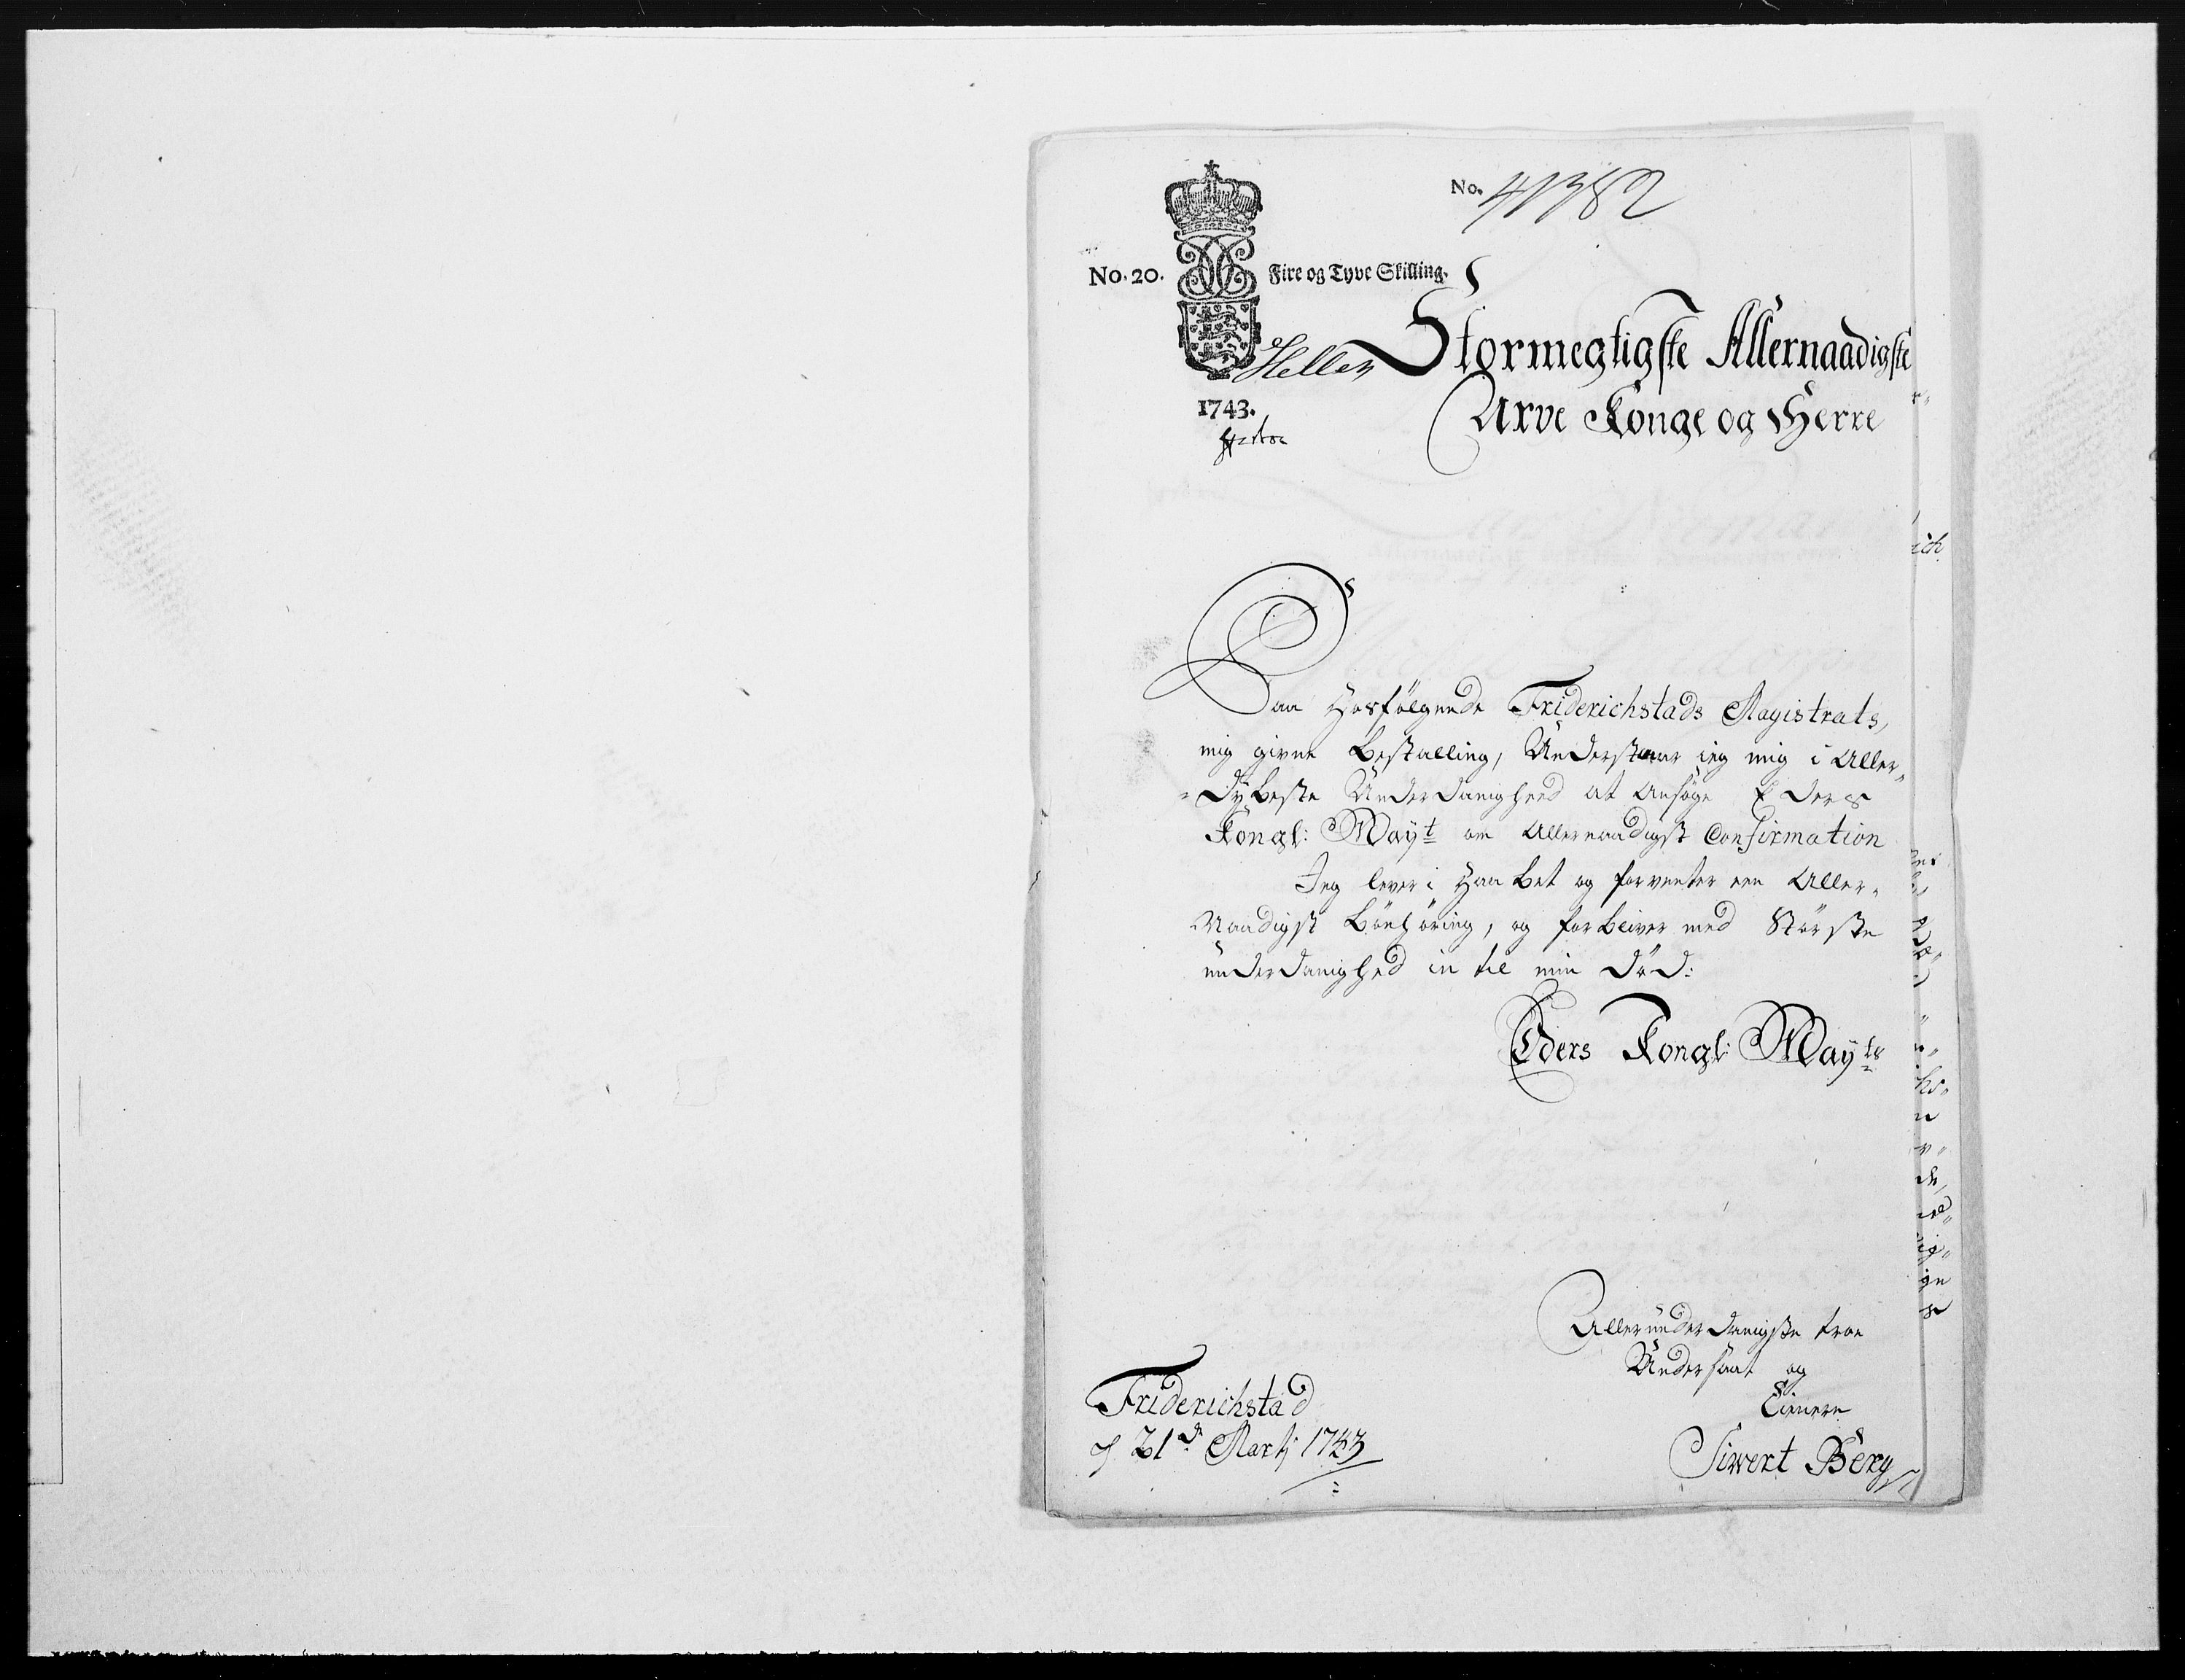 No. 41382
No. 20. Fire og Tyve Skilling.
Stormegtigste Allernaadigste
Heller
1743.
Arve Konge og Herre
Paa Hosfölgende Friderichstads Magistrats,
mig givne Bestalling, Understaar ieg mig i Aller„
„dybeste Underdanighed at Ansöge Eders
Kongl: Mayt om Allernaadigst Confirmation
Jeg lever i Haabet og forventer een Aller„
Naadigst Bönhöring, og forbliver med Störste
underdanighed in til min död:
Eders Kongl: Mayts
Allerunderdanigste troe
Undersaat og
Tienere
Friderichstad
d 21de Martj 1743
Siwert Berg